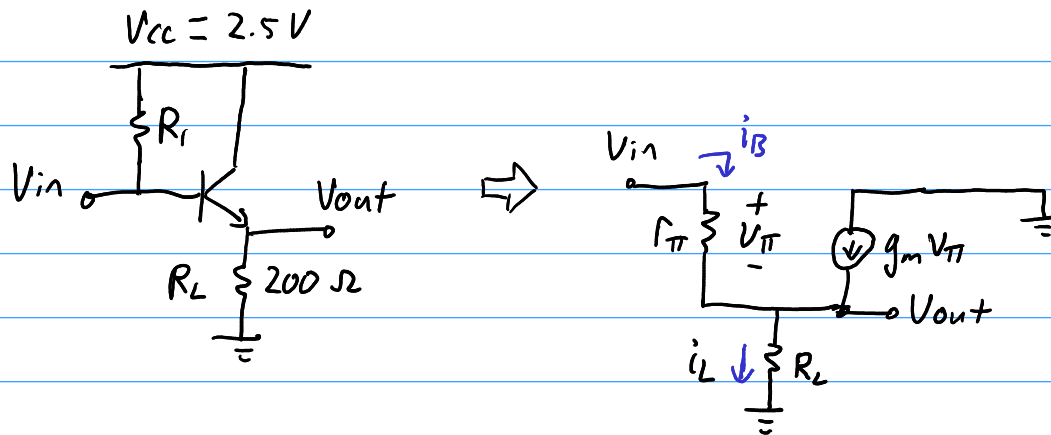 Vcc = 2.5 V
R₁
Vin
Vout
R_L 200 Ω
⇨
Vin
i_B
r_π
+
v_π
-
g_m v_π
Vout
i_L
R_L